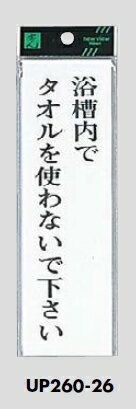 浴槽内で
タオルを使わないで下さい
UP260-26